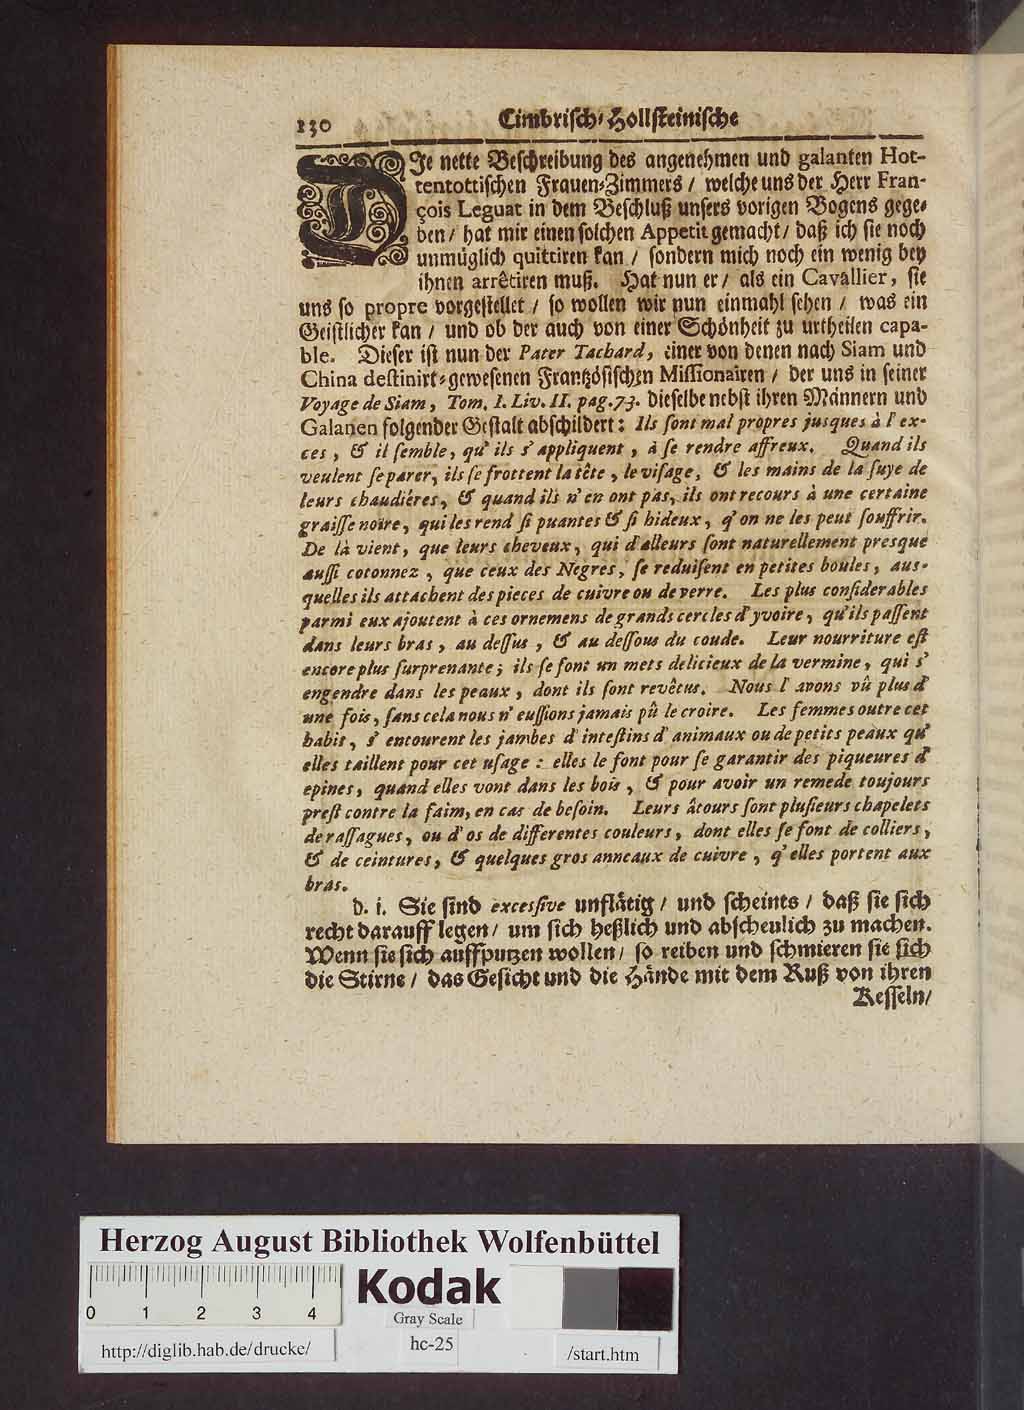 130 Cimbrisch-Hollsteinische
DJe nette Beschreibung des angenehmen und galanten Hot-
tentottischen Frauen-Zimmers / welche uns der Herr Fran-
çois Leguat in dem Beschluß unsers vorigen Bogens gege-
ben / hat mir einen solchen Appetit gemacht / daß ich sie noch
unmüglich quittiren kan / sondern mich noch ein wenig bey
ihnen arrêtiren muß. Hat nun er / als ein Cavallier, sie
uns so propre vorgestellet / so wollen wir nun einmahl sehen / was ein
Geistlicher kan / und ob der auch von einer Schönheit zu urtheilen capa-
ble. Dieser ist nun der Pater Tachard, einer von denen nach Siam und
China destinirt-gewesenen Frantzösischen Missionairen / der uns in seiner
Voyage de Siam, Tom. I. Liv. II. pag. 73. dieselbe nebst ihren Männern und
Galanen folgender Gestalt abschildert: Ils sont mal propres jusques à l' ex-
ces, & il semble, qu' ils s' appliquent, à se rendre affreux. Quand ils
veulent se parer, ils se frottent la tête, le visage, & les mains de la suye de
leurs chaudiéres, & quand ils n' en ont pas, ils ont recours à une certaine
graisse noire, qui les rend si puantes & si hideux, q' on ne les peut souffrir.
De là vient, que leurs cheveux, qui d' alleurs sont naturellement presque
aussi cotonnez, que ceux des Negres, se reduisent en petites boules, aus-
quelles ils attachent des pieces de cuivre ou de verre. Les plus considerables
parmi eux ajoutent à ces ornemens de grands cercles d' yvoire, qu' ils passent
dans leurs bras, au dessus, & au dessous du coude. Leur nourriture est
encore plus surprenante; ils se font un mets delicieux de la vermine, qui s'
engendre dans les peaux, dont ils sont revêtus. Nous l' avons vû plus d'
une fois, sans cela nous n' eussions jamais pû le croire. Les femmes outre cet
habit, s' entourent les jambes d' intestins d' animaux ou de petits peaux qu'
elles taillent pour cet usage: elles le font pour se garantir des piqueures d'
epines, quand elles vont dans les bois, & pour avoir un remede toujours
prest contre la faim, en cas de besoin. Leurs âtours sont plusieurs chapelets
de rassagues, ou d' os de differentes couleurs, dont elles se font de colliers,
& de ceintures, & quelques gros anneaux de cuivre, q' elles portent aux
bras.
d. i. Sie sind excessive unflätig / und scheints / daß sie sich
recht darauff legen / um sich heßlich und abscheulich zu machen.
Wenn sie sich auffputzen wollen / so reiben und schmieren sie sich
die Stirne / das Gesicht und die Hände mit dem Ruß von ihren
Kesseln /
Herzog August Bibliothek Wolfenbüttel
0 1 2 3 4
Kodak
Gray Scale
http://diglib.hab.de/drucke/ hc-25 /start.htm